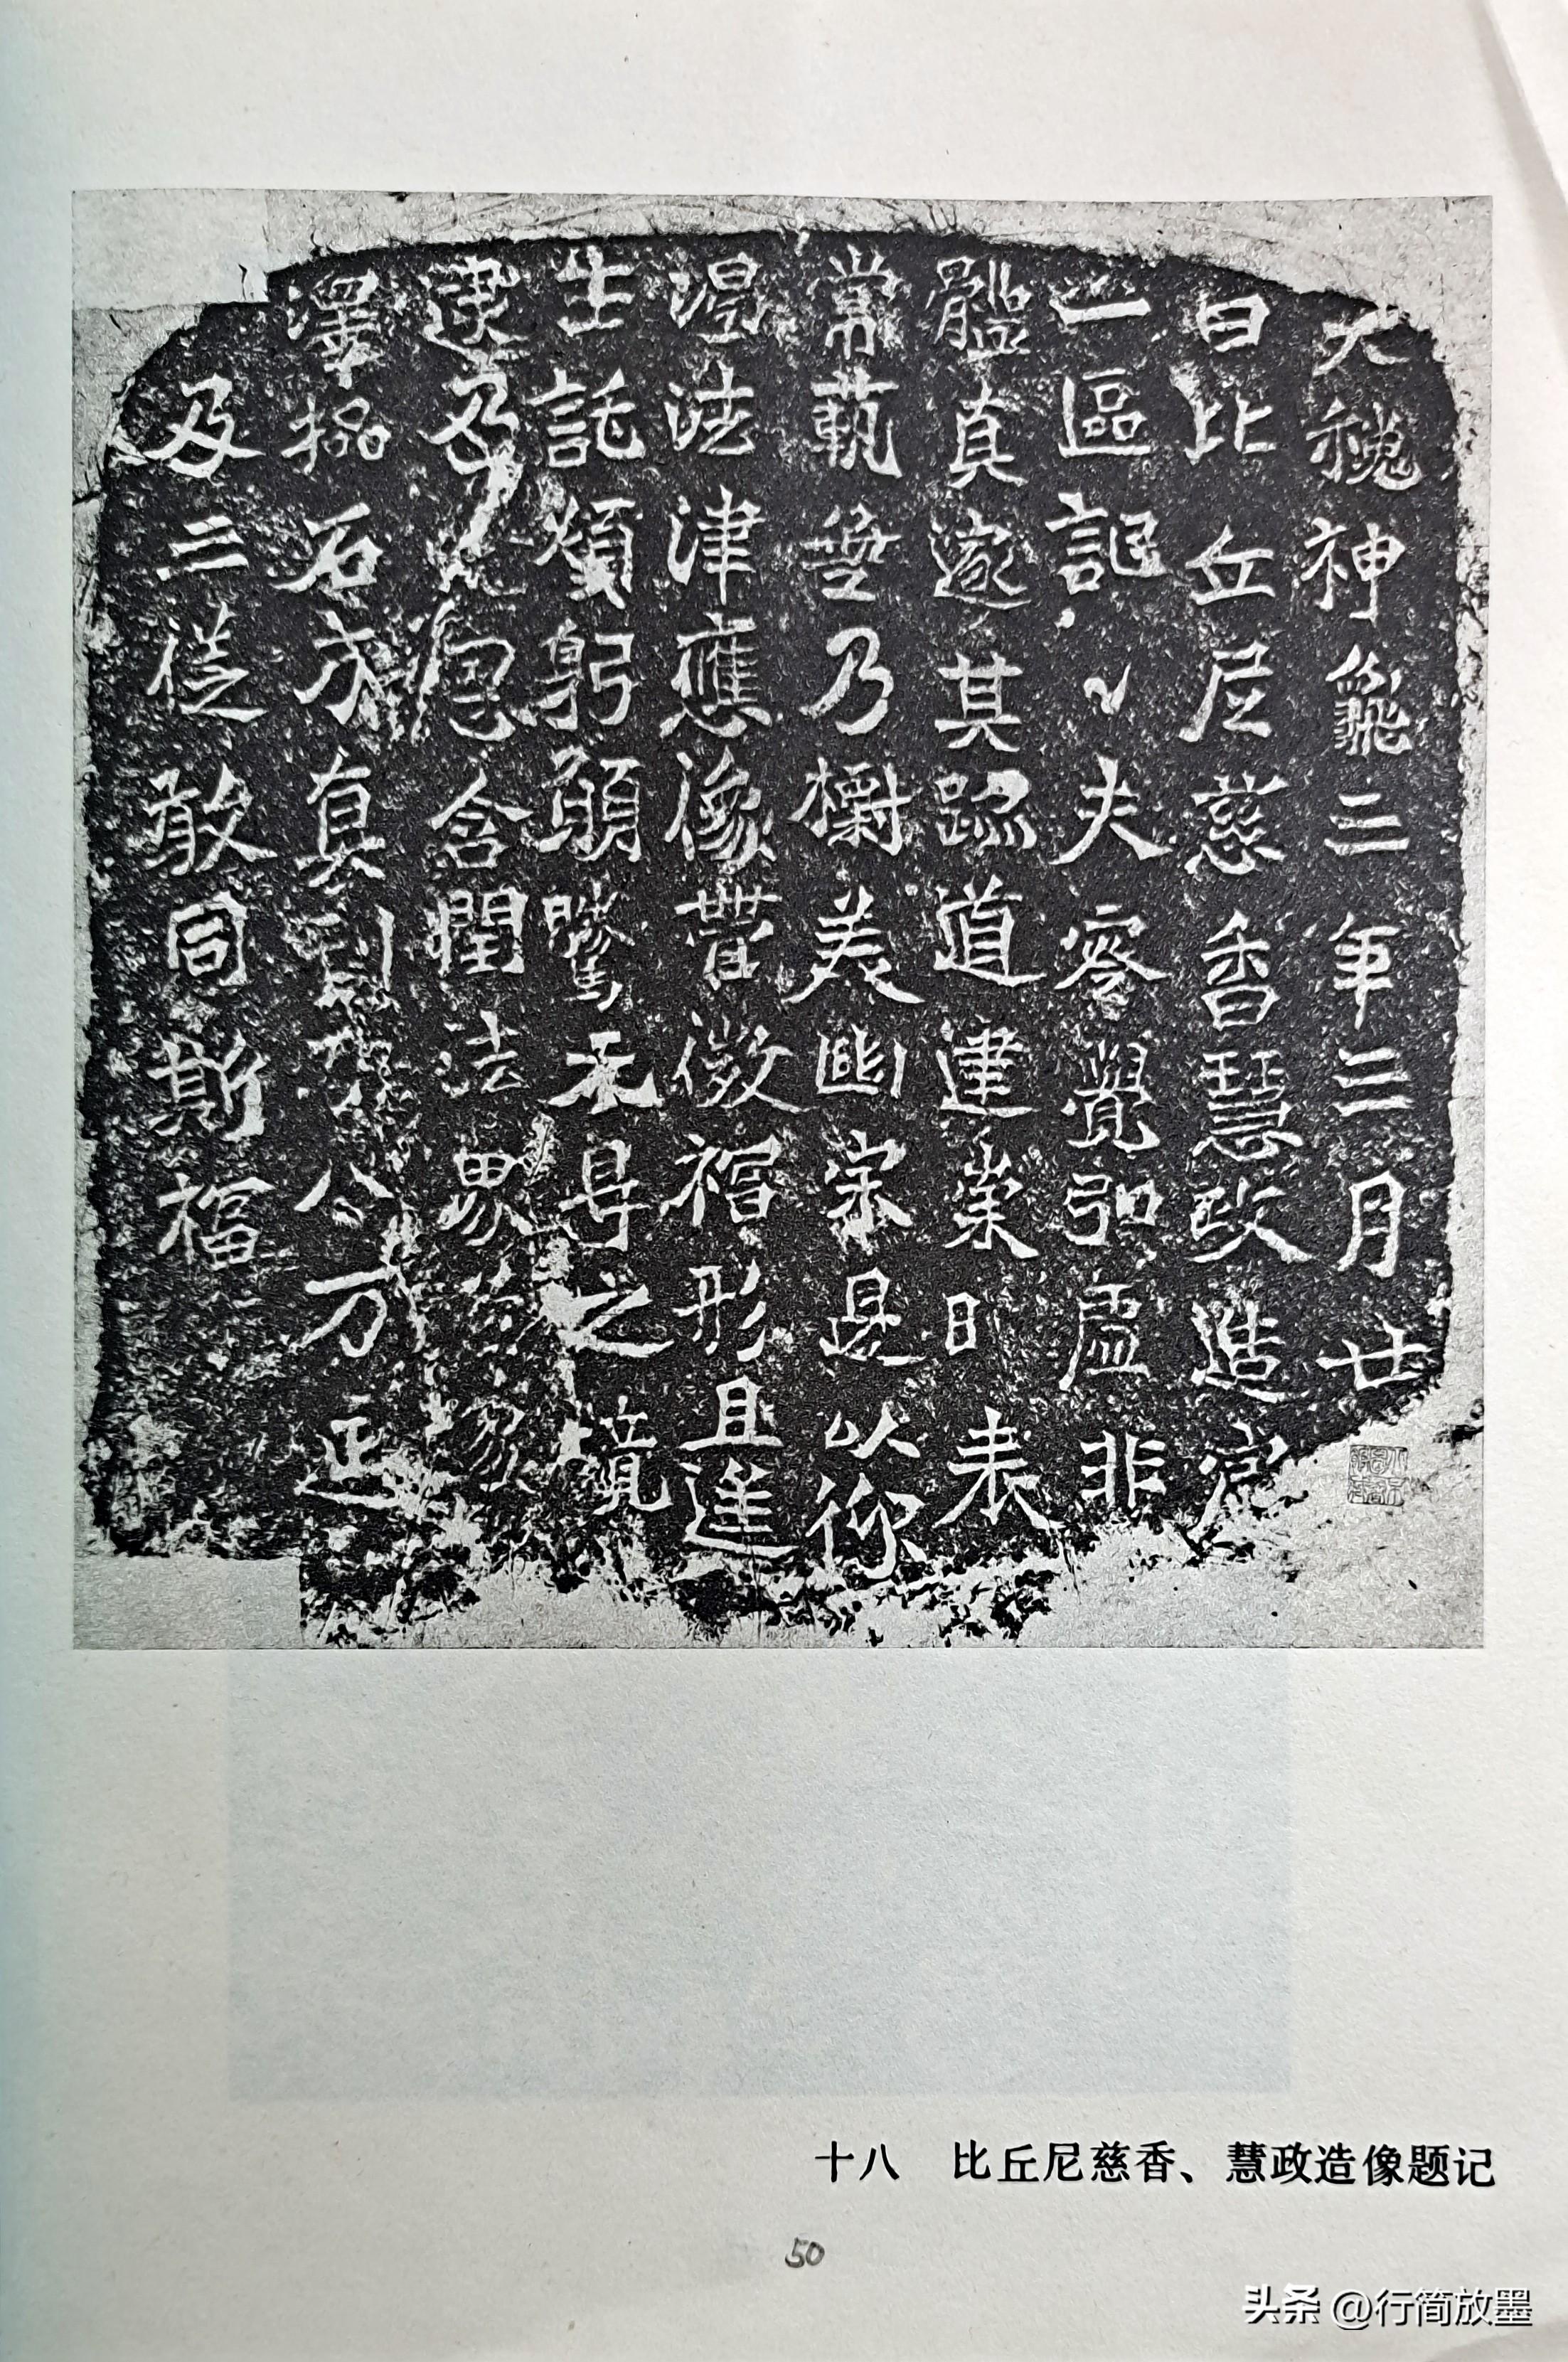 大魏神龜三年三月廿
日比丘尼慈香慧政造窟
一區記〻夫零覺弘虛非
體真邃其跡道建崇日表
常範无乃標美幽宗是以仰
渴法津應像營微福形且逢
生託煩躬願騰无㝵之境
逮及恩含閏法界
澤石成真刊
及三從敢同斯福
十八 比丘尼慈香、慧政造像题记
50
头条 @行简放墨